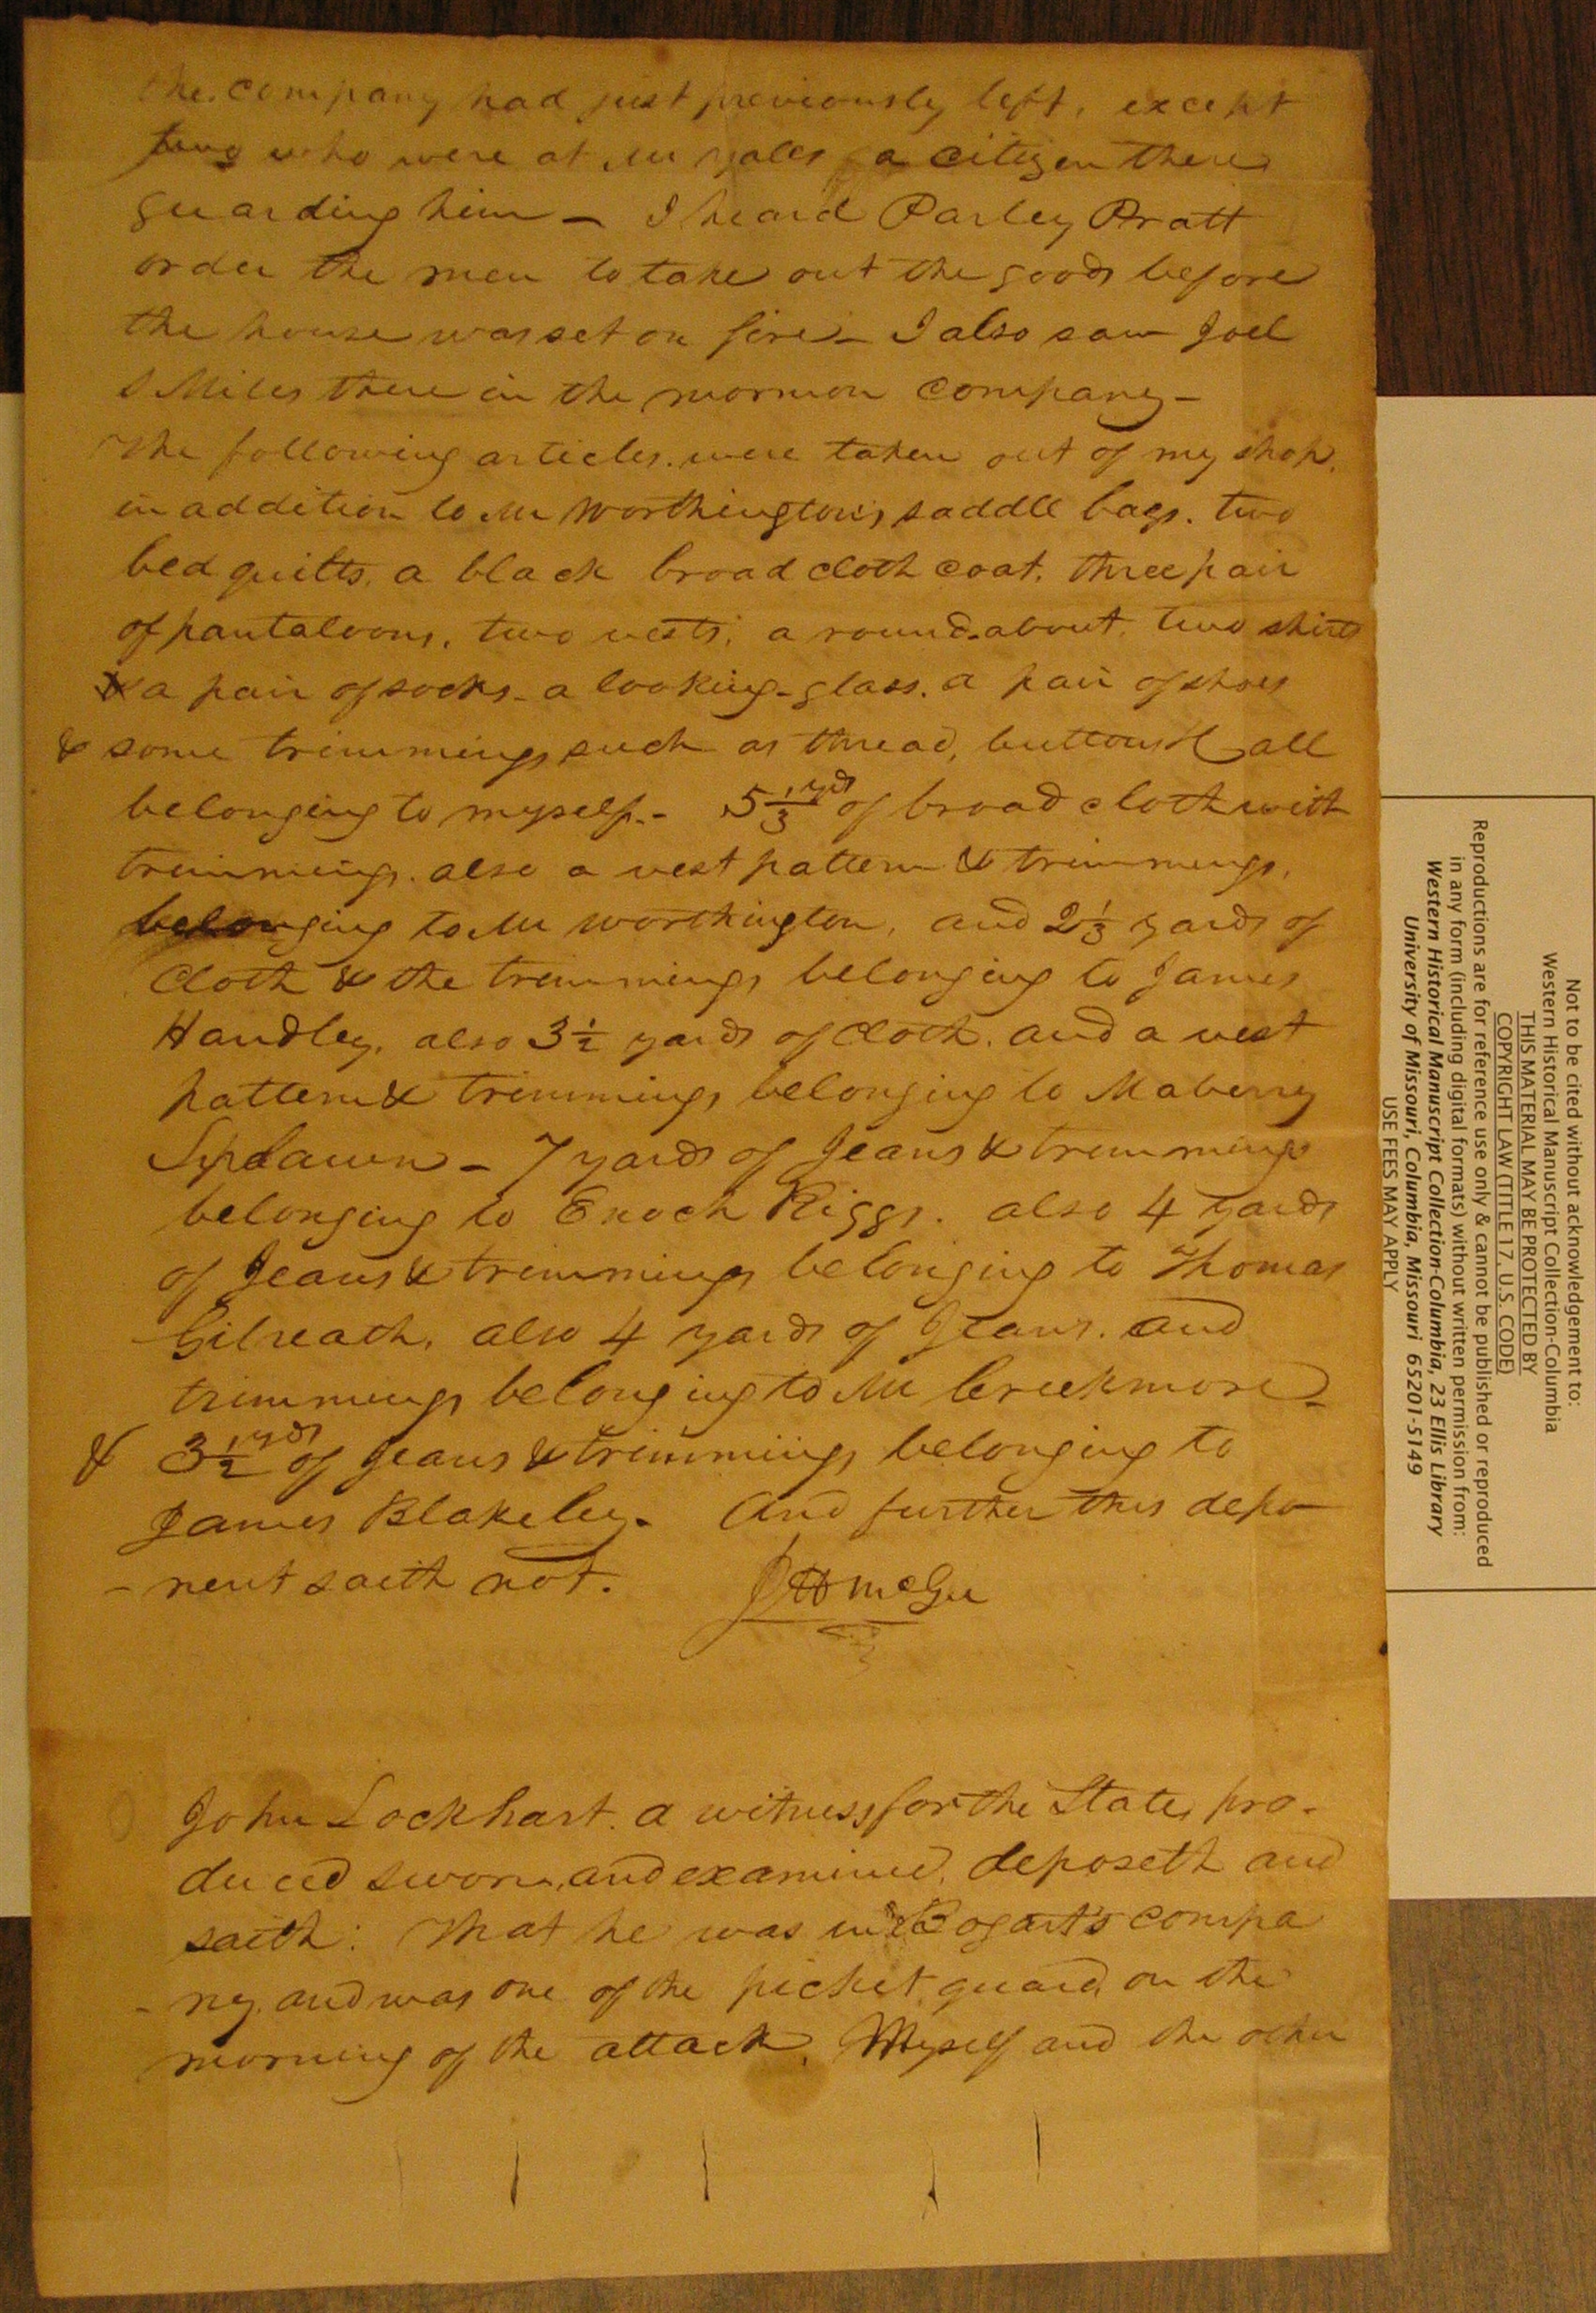 the company had just previously left, except
two who were at Mr Yales a citizen there
guarding him - I heard Parley Pratt
order the men to take out the goods before
the house was set on fire - I also saw Joel
S Miles there in the mormon company -
The following articles were taken out of my shop.
in addition to Mr Worthington's saddle bags. two
bed quilts, a black broad cloth coat, three pair
of pantaloons, two vests, a round-about, two shirts
a pair of socks - a looking-glass. a pair of shoes
& some trimmings such as thread, buttons &c all
belonging to myself. - 5 1/3 yds of broad cloth with
trimmings. also a vest pattern & trimmings,
belonging to Mr Worthington, and 2 1/3 yards of
cloth & the trimmings belonging to James
Handley, also 3 1/2 yards of cloth. and a vest
pattern & trimmings belonging to Maberry
Splawn - 7 yards of Jeans & trimmings
belonging to Enoch Riggs. also 4 yards
of Jeans & trimmings belonging to Thomas
Gilreath, also 4 yards of Jeans. and
trimmings belonging to Mr Creekmore -
& 3 1/2 yds of Jeans & trimmings belonging to
James Blakeley. And further this depo
- nent saith not. J H McGee
John Lockhart. a witness for the State, pro-
duced sworn, and examined, deposeth and
saith: That he was in Bogart's compa
- ny. and was one of the picket guard, on the
morning of the attack. Myself and the other
Not to be cited without acknowledgement to:
Western Historical Manuscript Collection-Columbia
THIS MATERIAL MAY BE PROTECTED BY
COPYRIGHT LAW (TITLE 17, U.S. CODE)
Reproductions are for reference use only & cannot be published or reproduced
in any form (including digital formats) without written permission from:
Western Historical Manuscript Collection-Columbia, 23 Ellis Library
University of Missouri, Columbia, Missouri 65201-5149
USE FEES MAY APPLY